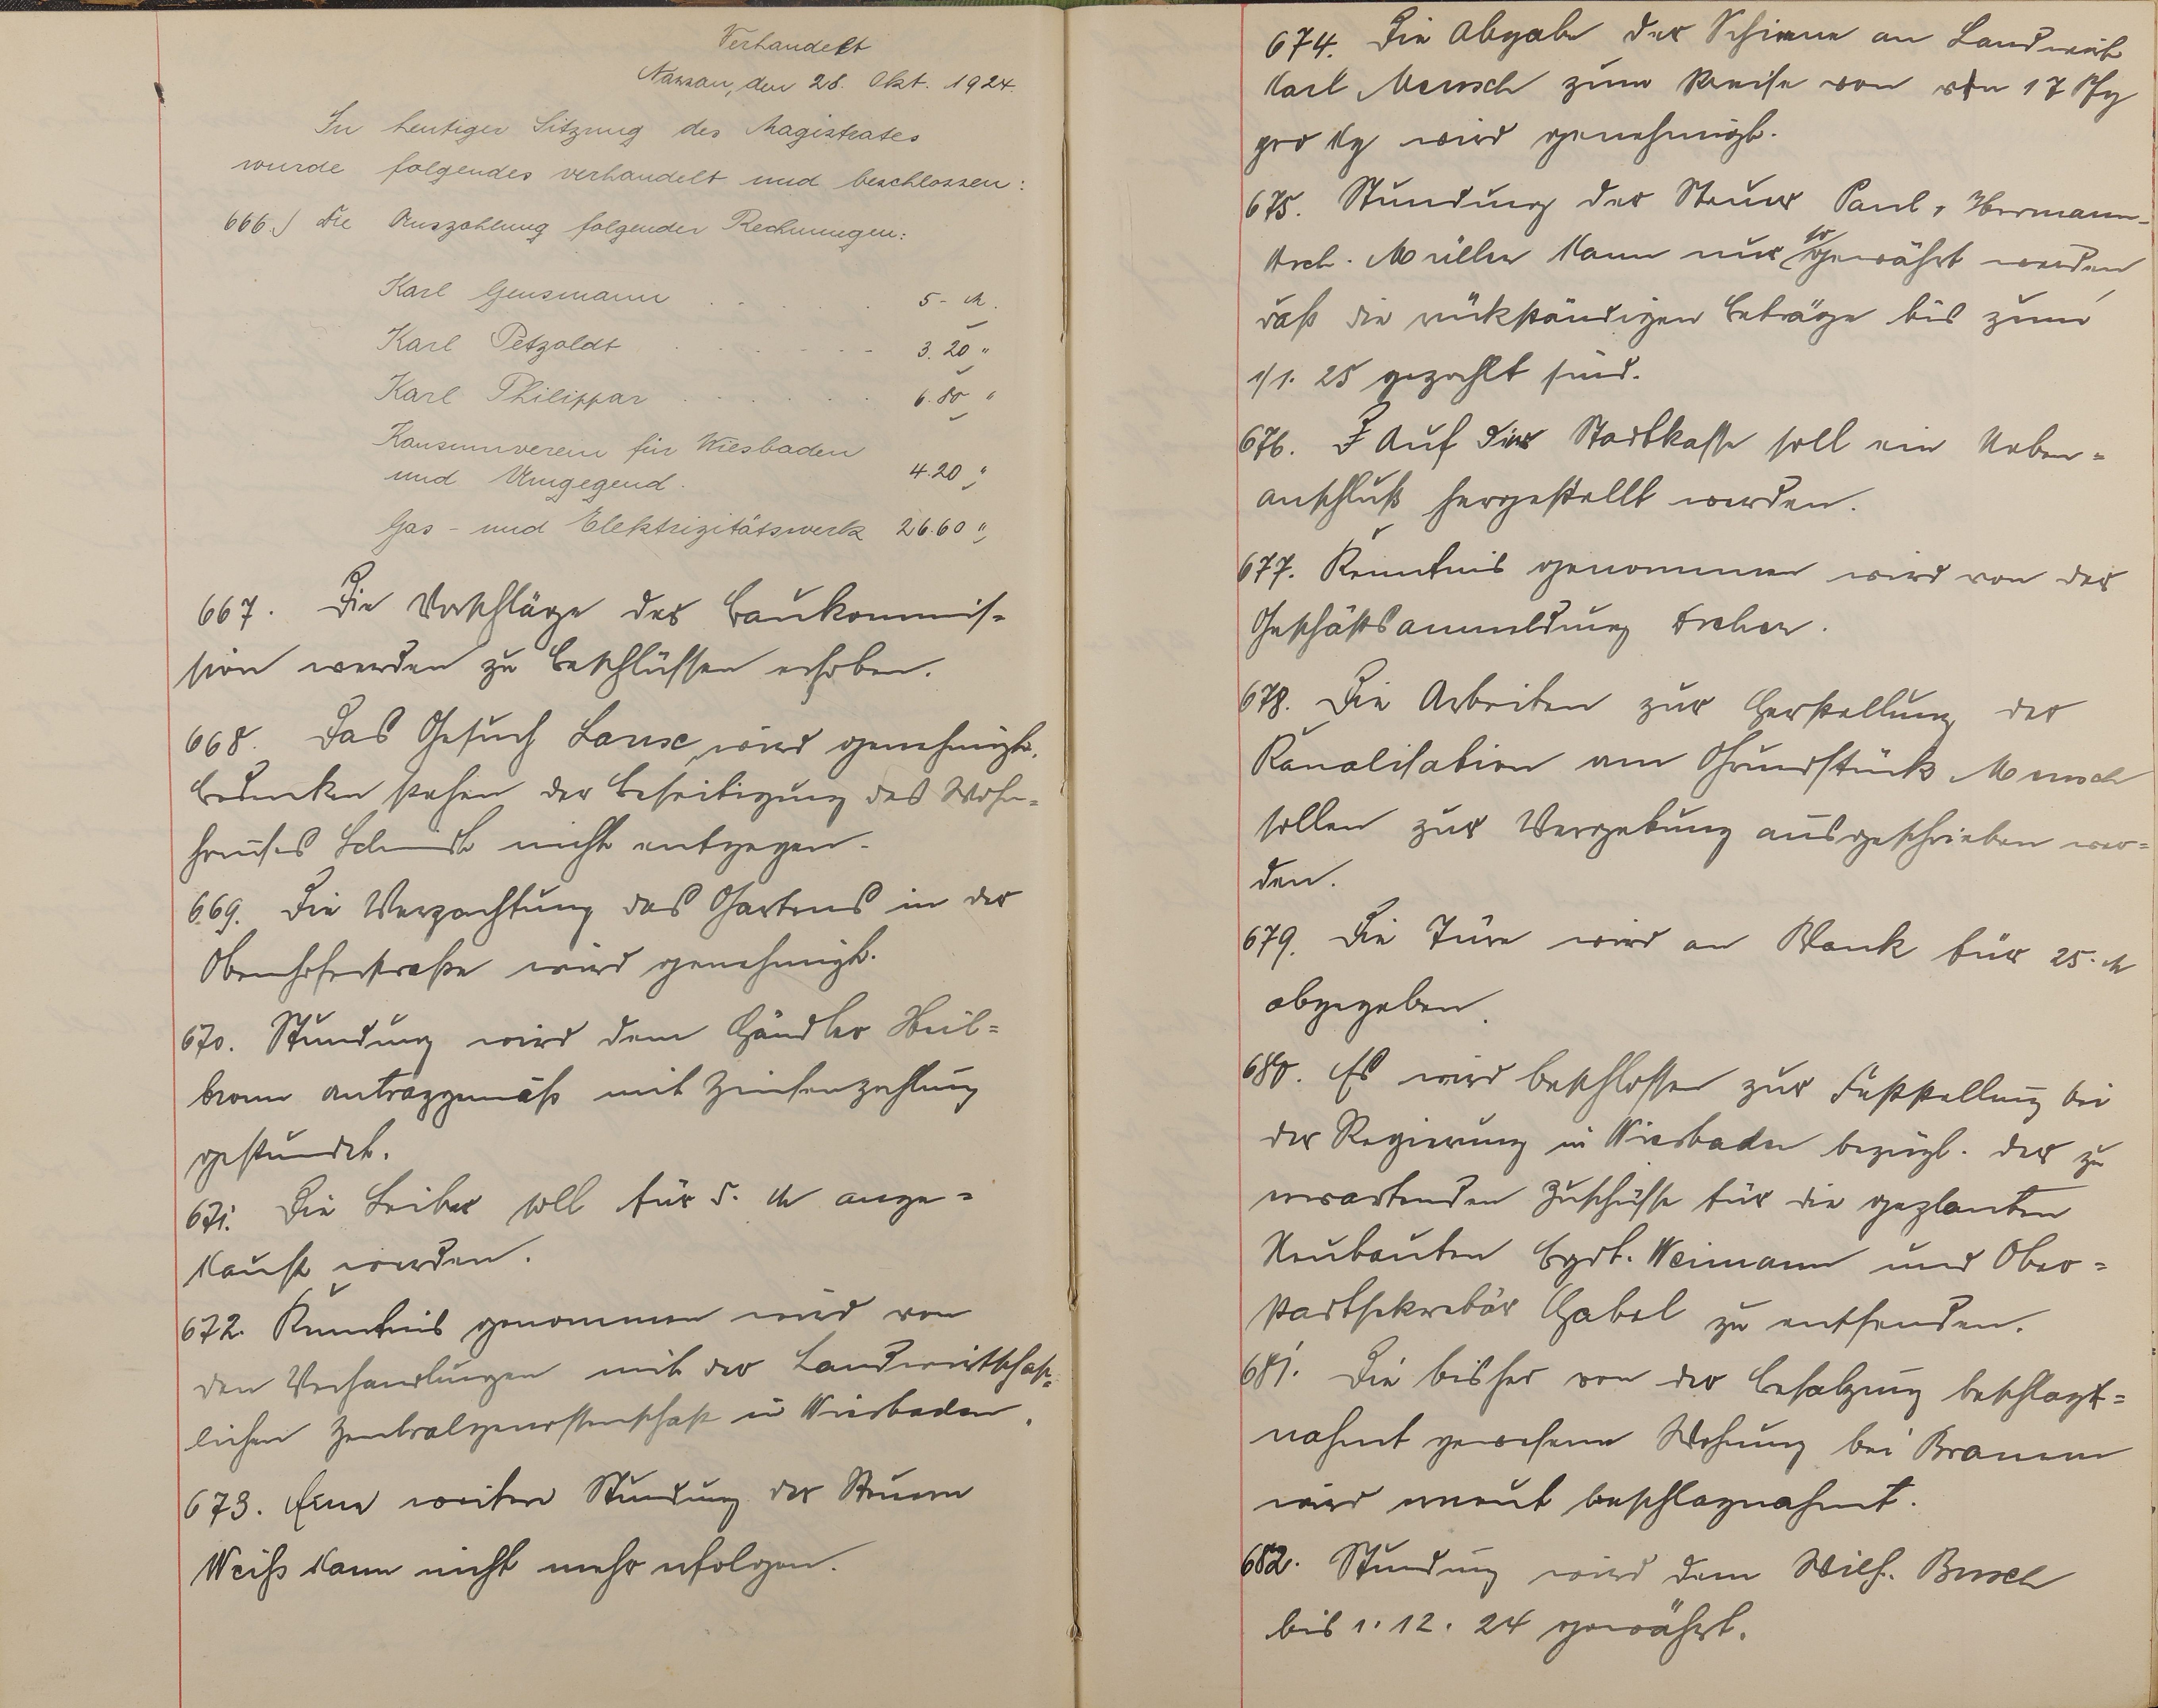 Verhandelt
Nassau, den 28. Okt. 1924.
In heutiger Sitzung des Magistrates
wurde folgendes verhandelt und beschlossen:
666.) Die Auszahlung folgender Rechnungen:
Karl Gensmann . . . . . 5 - M.
Karl Petzoldt . . . . . 3. 20 "
Karl Philippar . . . . . 6. 80 "
Konsumverein für Wiesbaden
und Umgegend. 4.20 "
Gas- und Elektrizitätswerk 26.60 "
667. Die Vorschläge der Baukommis-
sion werden zu Beschlüssen erhoben.
668. Das Gesuch Lause wird genehmigt.
Bedenken stehen der Beseitigung des Wohn-
hauses Schmidt nicht entgegen.
669. Die Verpachtung des Gartens in der
Obernhoferstraße wird genehmigt.
670. Stundung wird dem Händler Heil-
bronn antragsgemäß mit Zinsenzahlung
gestundet.
671. Die Leiter soll für 5. M ange-
kauft werden.
672. Kenntnis genommen wird von
den Verhandlungen mit der Landwirtschaft-
lichen Zentralgenossenschaft in Wiesbaden.
673. Eine weitere Stundung der Steuern
Weiß kann nicht mehr erfolgen.
674. Die Abgabe der Schiene an Landwirt
Karl Mensch zum Preise von 17 Pfg
pro Kg wird genehmigt.
675. Stundung der Steuer Paul, Hermann-
Müller kann nur so gewährt werden,
daß die rückständigen Beträge bis zum
1/1. 25 gezahlt sind.
676. Auf der Stadtkasse soll ein Neben-
anschluß hergestellt werden.
677. Kenntnis genommen wird von der
Geschäftsanmeldung
678. Die Arbeiten zur Herstellung der
Kanalisation am Grundstück Mensch
sollen zur Vergebung ausgeschrieben wer-
den.
679. Die Türe wird an Wank für 25. M
abgegeben.
680. Es wird beschlossen zur Feststellung bei
der Regierung in Wiesbaden bezügl. der zu
erwartenden Zuschüsse für die geplanten
Neubauten Bgdt. Weimann und Ober-
stadtsekretär Gabel zu entsenden.
681. Die bisher von der Besatzung beschlag-
nahmt gewesene Wohnung bei Bramm
wird erneut beschlagnahmt.
682. Stundung wird dem Wilh. Busch
bis 1. 12. 24 gewährt.